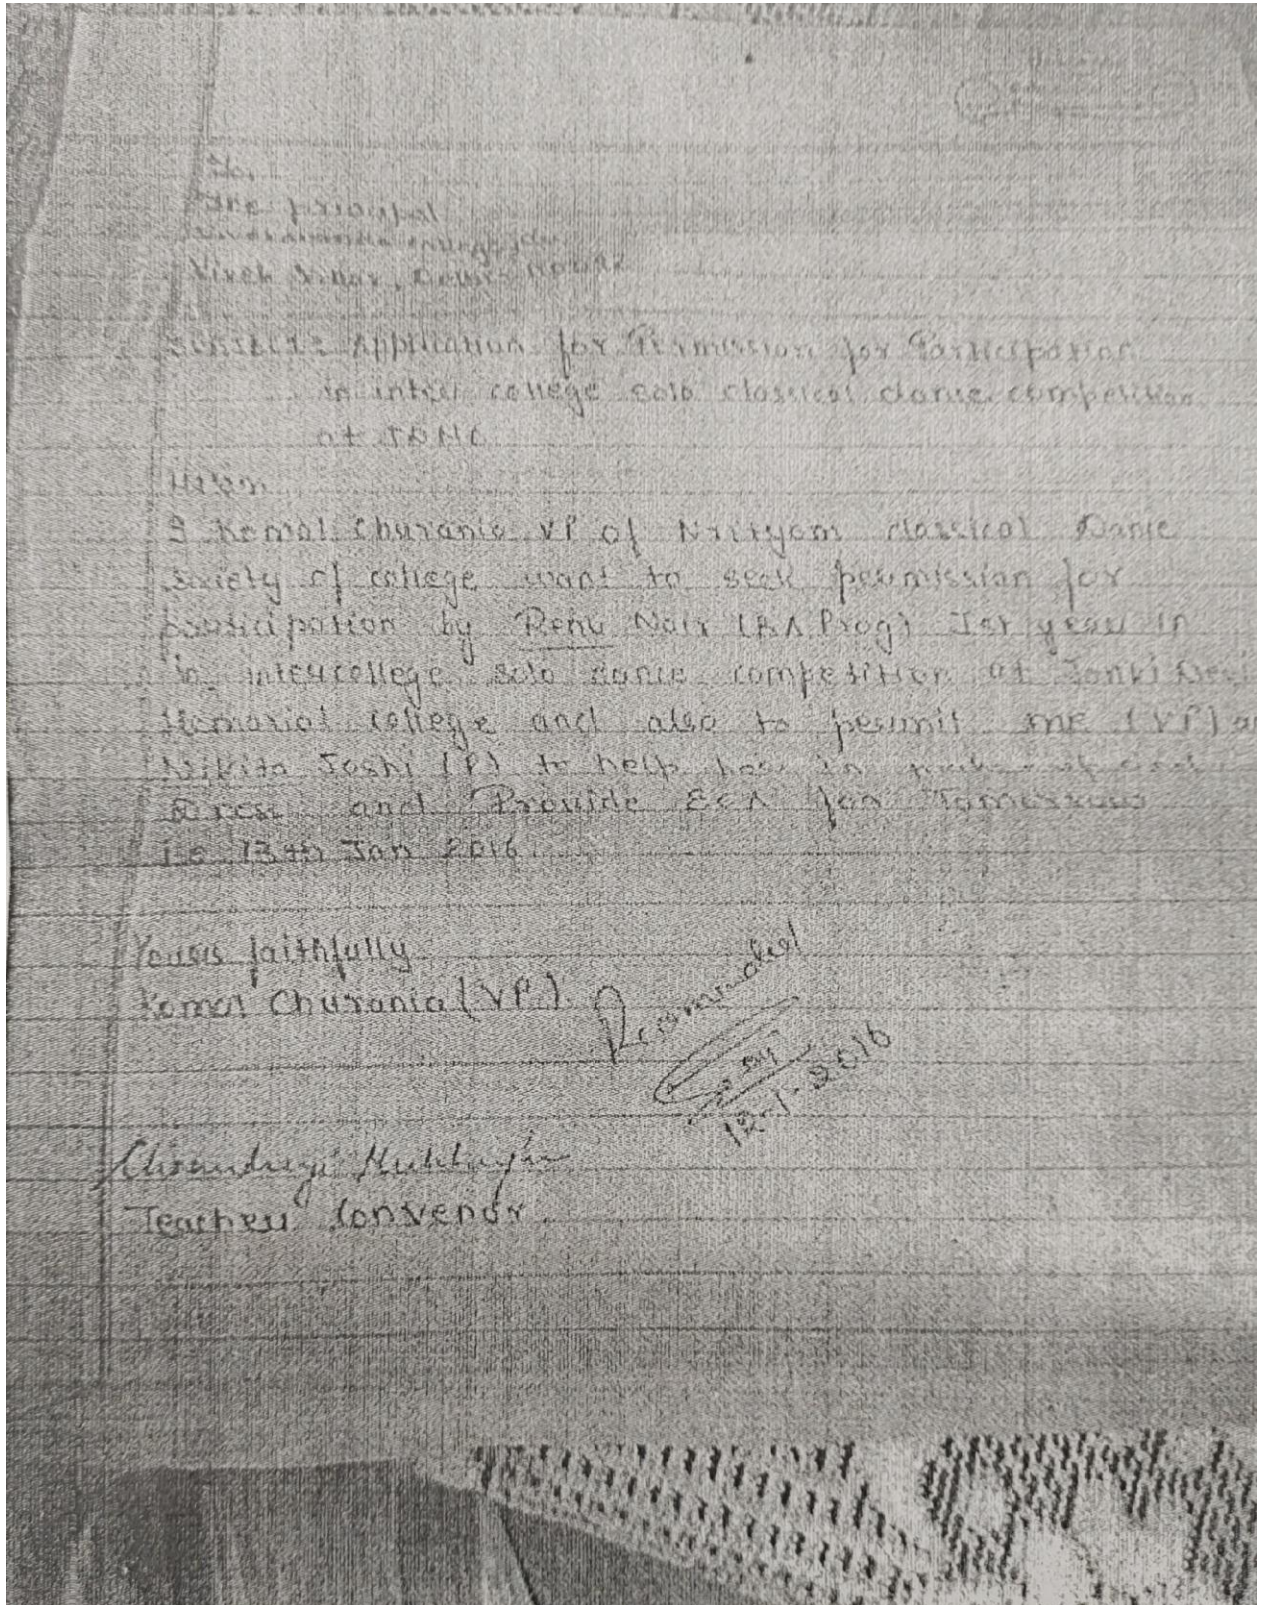 To,
The principal
Vivekananda college, DU
Vivek Vihar, Delhi-110095
Subject:- Application for Permission for Participation
in inter college solo classical dance competition
at JDMC
Ma'am
I Komal Churania VP of Nrityam classical Dance
society of college want to seek permission for
participation by Renu Nair (B.A. Prog) Ist year in
in intercollege solo dance competition at Janki Devi
Memorial college and also to permit me (VP) a
Nikita Joshi (P) to help her in
Dress and Provide ECA for Tomorrow
i.e 13th Jan 2016
Yours faithfully
Komal Churania (VP)
Recommended
12-1-2016
Teacher Convenor